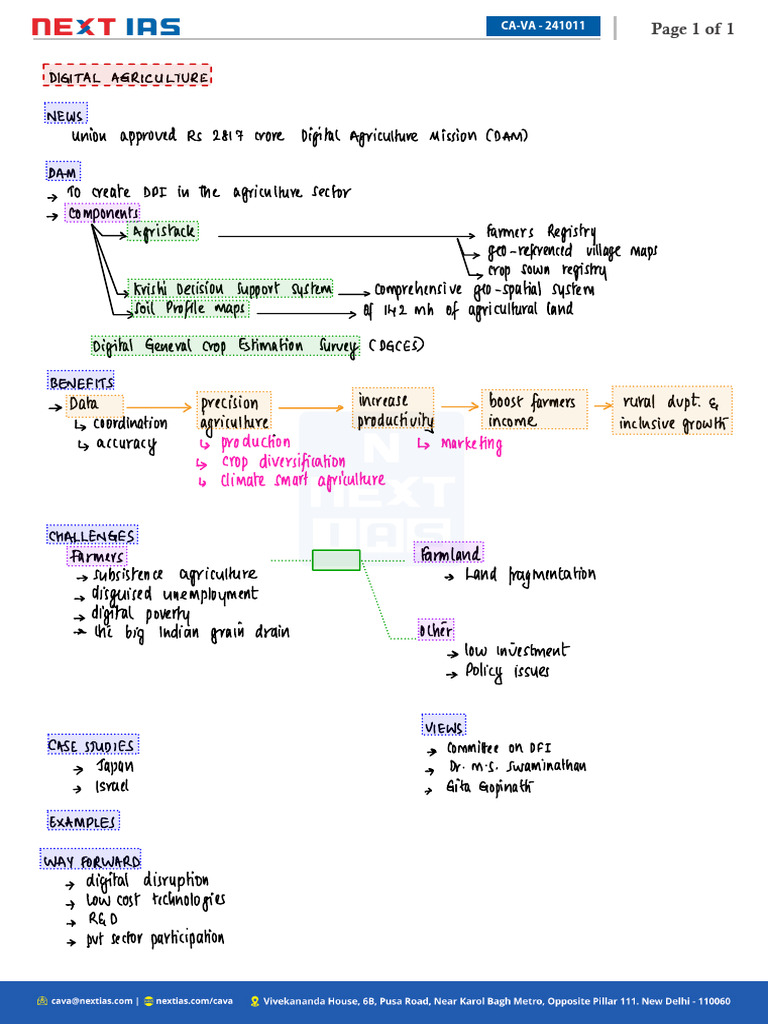 NEXT IAS
CA-VA - 241011
Page 1 of 1
DIGITAL AGRICULTURE
NEWS
Union approved Rs 2817 crore Digital Agriculture Mission (DAM)
DAM
→ To create DPI in the agriculture sector
→ Components
→ Agristack → Farmers Registry
→ geo-referenced village maps
→ crop sown registry
→ Krishi Decision Support System → comprehensive geo-spatial system
→ Soil Profile Maps → Of 142 mh of agricultural land
Digital General Crop Estimation Survey (DGCES)
BENEFITS
→ Data → precision agriculture → increase productivity → boost farmers income → rural dvpt. & inclusive growth
↳ coordination
↳ accuracy
↳ production
↳ crop diversification
↳ climate smart agriculture
↳ marketing
NEXT IAS
CHALLENGES
Farmers
→ subsistence agriculture
→ disguised unemployment
→ digital poverty
→ the big Indian grain drain
Farmland
→ Land fragmentation
Other
→ low investment
→ Policy issues
CASE STUDIES
→ Japan
→ Israel
VIEWS
→ Committee on DFI
→ Dr. M.S. Swaminathan
→ Gita Gopinath
EXAMPLES
WAY FORWARD
→ digital disruption
→ low cost technologies
→ R&D
→ pvt sector participation
cava@nextias.com | nextias.com/cava Vivekananda House, 6B, Pusa Road, Near Karol Bagh Metro, Opposite Pillar 111. New Delhi - 110060